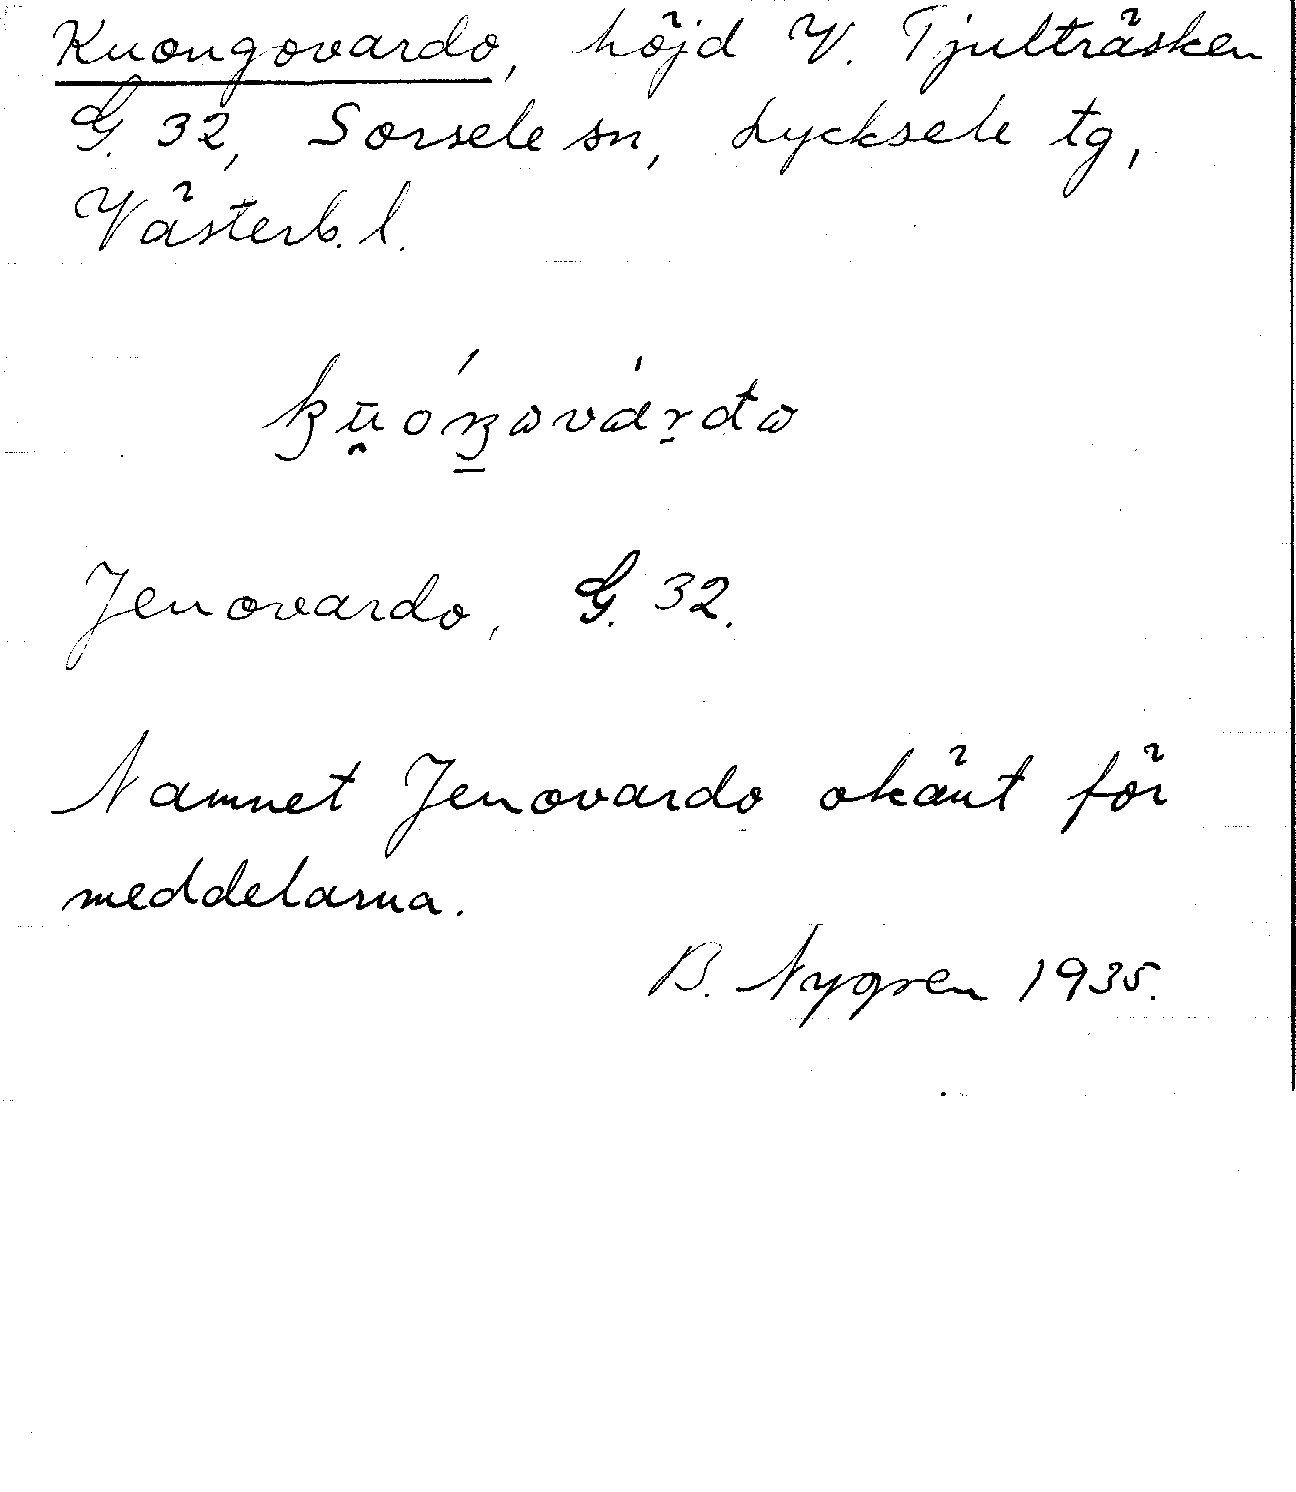 Kuongovardo, höjd V. Tjulträsken
G. 32, Sorsele sn, Lycksele tg,
Västerb. l.
Jenovardo, G. 32.
Namnet Jenovardo okänt för
meddelarna.
B. Nygren 1935.